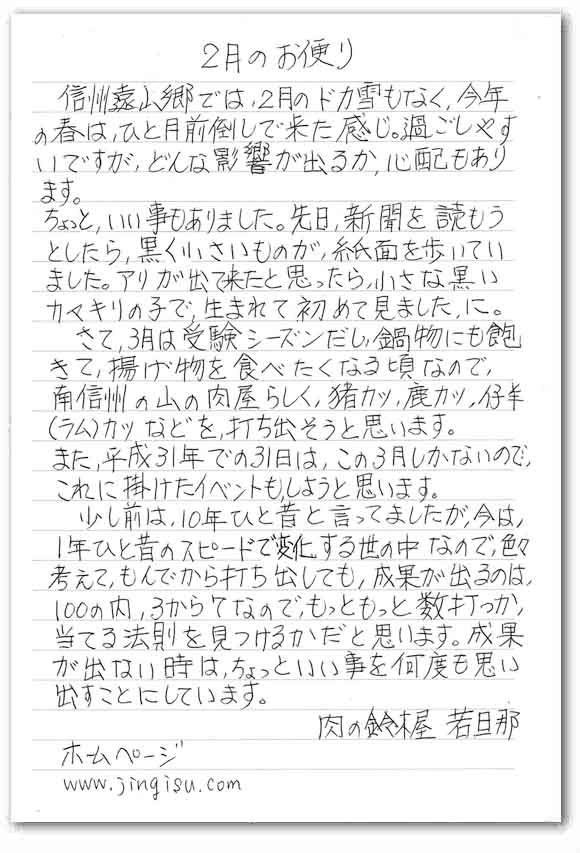 2月のお便り
信州遠山郷では,2月のドカ雪もなく,今年
の春は,ひと月前倒しで来た感じ。過ごしやす
いですが,どんな影響が出るか,心配もあり
ます。
ちょっと,いい事もありました。先日,新聞を読もう
としたら,黒く小さいものが,紙面を歩いてい
ました。アリが出て来たと思ったら,小さな黒い
カマキリの子で,生まれて初めて見ました,に。
さて,3月は受験シーズンだし,鍋物にも飽
きて,揚げ物を食べたくなる頃なので,
南信州の山の肉屋らしく,猪カツ,鹿カツ,仔羊
(ラム)カツなどを,打ち出そうと思います。
また,平成31年での31日は,この3月しかないので,
これに掛けたイベントも,しようと思います。
少し前は,10年ひと昔と言ってましたが,今は,
1年ひと昔のスピードで変化する世の中なので,色々
考えて,もんでから打ち出しても,成果が出るのは,
100の内,3から7なので,もっともっと数打つか,
当てる法則を見つけるかだと思います。成果
が出ない時は,ちょっといい事を何度も思い
出すことにしています。
肉の鈴木屋 若旦那
ホームページ
www.jingisu.com